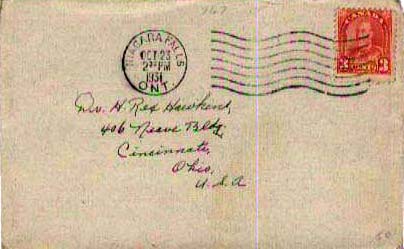 767
NIAGARA FALLS
OCT 23
2 30 PM
1931
ONT.
CANADA
3 CENTS 3
Dr. H Rex Hawkins,
406 Neave Bldg,
Cincinnati,
Ohio,
U.S.A